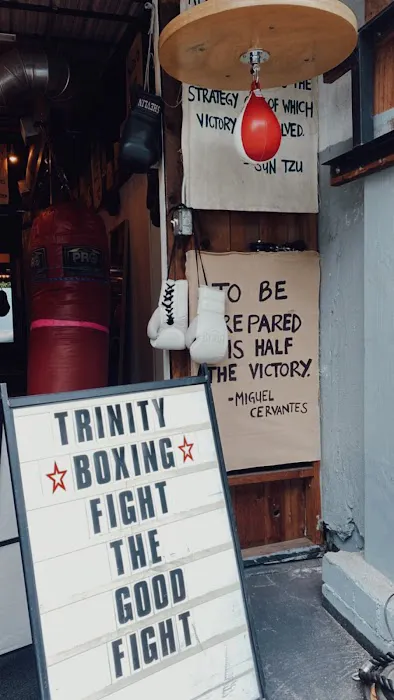 STRATEGY OF WHICH
VICTORY
- SUN TZU
TO BE
PREPARED
IS HALF
THE VICTORY.
-MIGUEL
CERVANTES
TRINITY
BOXING
FIGHT
THE
GOOD
FIGHT